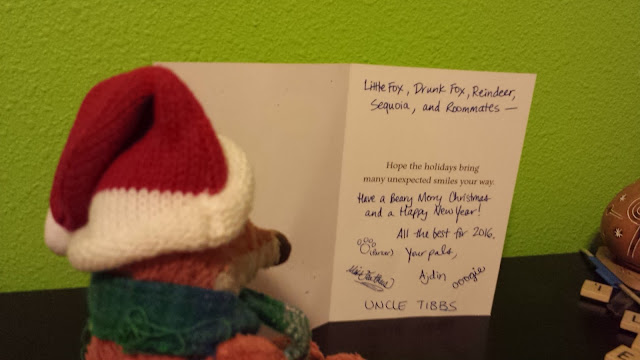 Little Fox, Drunk Fox, Reindeer,
Sequoia, and Roommates —
Hope the holidays bring
many unexpected smiles your way.
Have a Beary Merry Christmas
and a Happy New Year!
All the best for 2016,
Your pals,
Ajdin
ooogie
UNCLE TIBBS